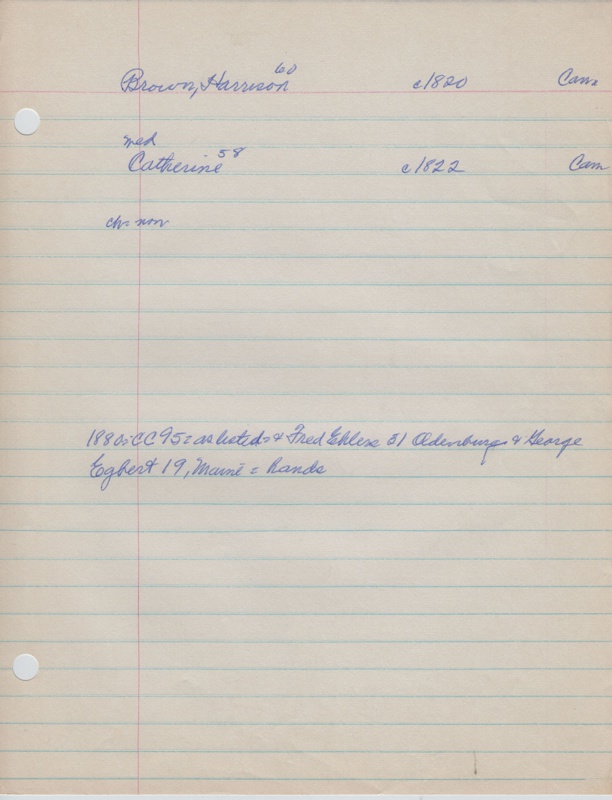 Brown, Harrison 60 c1820 Can.
med
Catherine 58 c1822 Can
ch= non
1880: CC 95 = as listed = & Fred Ehlers 51 Oldenburg & George
Egbert 19, Maine = hands